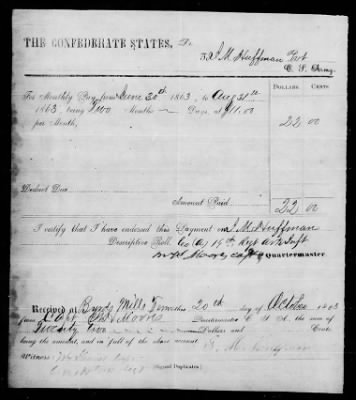 THE CONFEDERATE STATES, Dr.
To J. M. Huffman Pvt
C. S. Army.
DOLLARS CENTS
For Monthly Pay from June 30th 1863, to Aug 31st
1863, being Two Months Days, at $11.00
per Month, 22 00
Deduct Due
Amount Paid 22 00
I certify that I have endorsed this Payment on J. M. Huffman
Descriptive Roll. Co (A) Regt
Quartermaster.
Received at Mills this 20th day of October 1863
from Capt Morris Quartermaster C. S. A. the sum of
Twenty two Dollars and Cents,
being the amount, and in full of the above account
J. M. Huffman
WITNESS
(Signed Duplicates.)